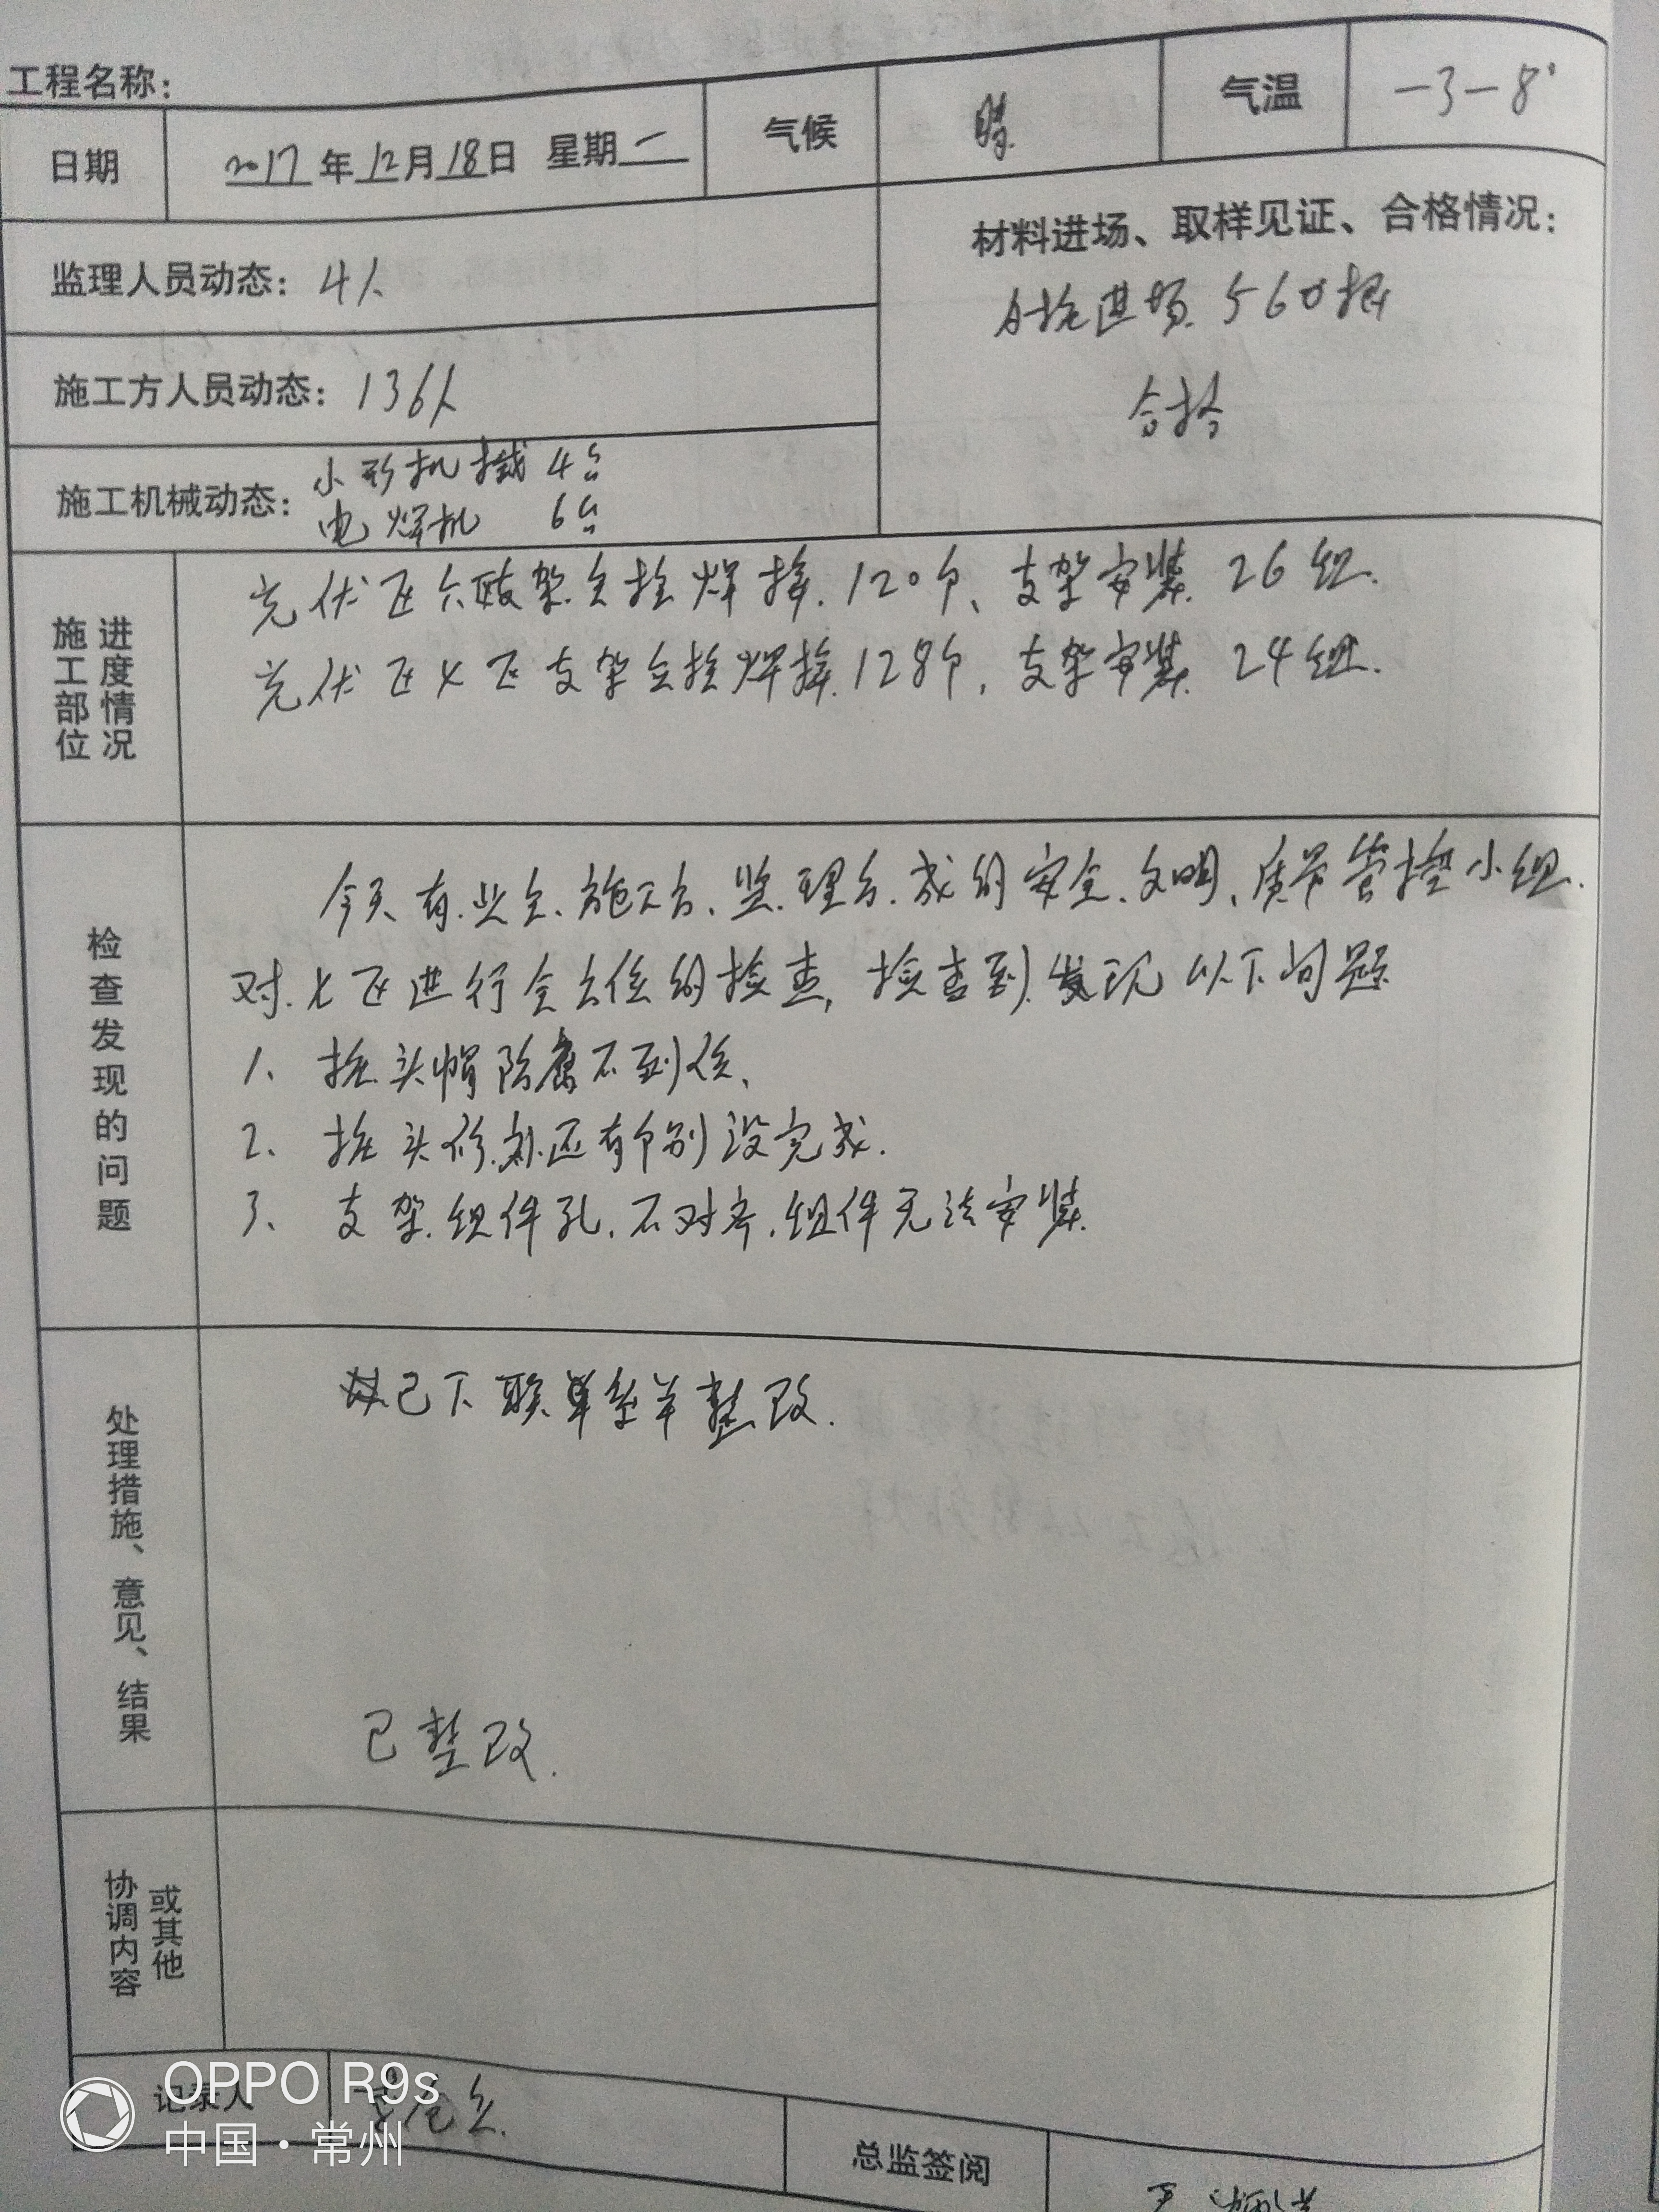 工程名称：
日期 2017年12月18日 星期一 气候 晴 气温 -3-8°
监理人员动态：4人
材料进场、取样见证、合格情况：
进场560根
合格
施工方人员动态：136人
施工机械动态：小形机械 4台
电焊机 6台
施工部位 进度情况
光伏区六区支架立柱焊接120个、支架安装26组.
光伏区七区支架立柱焊接128个，支架安装24组.
检查发现的问题
今天有业主、施工方、监理方组成的安全、文明、质量管控小组
对七区进行全方位的检查，检查到发现以下问题
1、桩头帽防腐不到位、
2、桩头修补还有个别没完成.
3、支架组件孔不对齐，组件无法安装.
处理措施、意见、结果
已下联单整改.
已整改.
协调内容 或其他
记录人
总监签阅
OPPO R9s
中国·常州